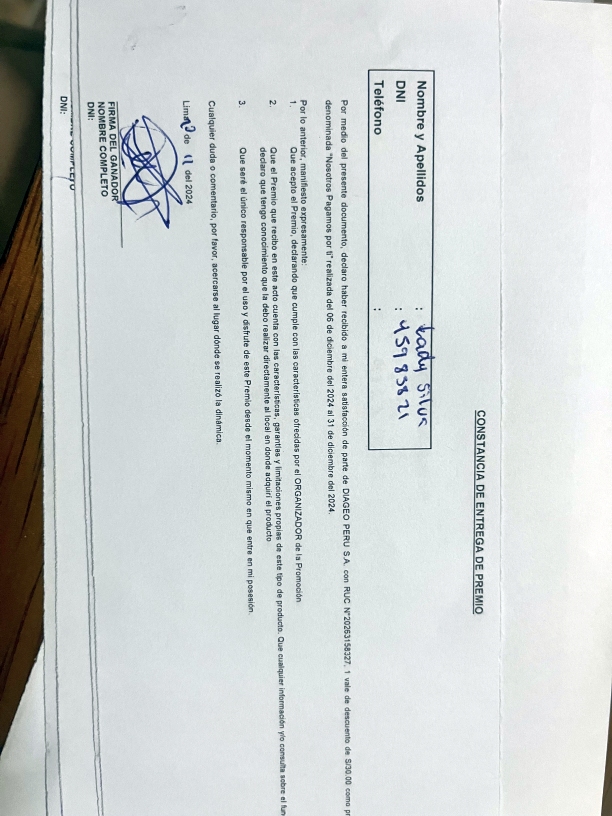 CONSTANCIA DE ENTREGA DE PREMIO
Nombre y Apellidos : Lady Silva
DNI : 45983821
Teléfono :
Por medio del presente documento, declaro haber recibido a mi entera satisfacción de parte de DIAGEO PERU S.A. con RUC N°20263158327, 1 vale de descuento de S/30.00 como pr
denominada "Nosotros Pagamos por ti" realizada del 06 de diciembre del 2024 al 31 de diciembre del 2024.
Por lo anterior, manifiesto expresamente:
1. Que acepto el Premio, declarando que cumple con las características ofrecidas por el ORGANIZADOR de la Promoción
2. Que el Premio que recibo en este acto cuenta con las características, garantías y limitaciones propias de este tipo de producto. Que cualquier información y/o consulta sobre el fun
declaro que tengo conocimiento que la debo realizar directamente al local en donde adquirí el producto
3. Que seré el único responsable por el uso y disfrute de este Premio desde el momento mismo en que entre en mi posesión.
Cualquier duda o comentario, por favor, acercarse al lugar dónde se realizó la dinámica.
de 12 del 2024
FIRMA DEL GANADOR
NOMBRE COMPLETO
DNI:
DNI: